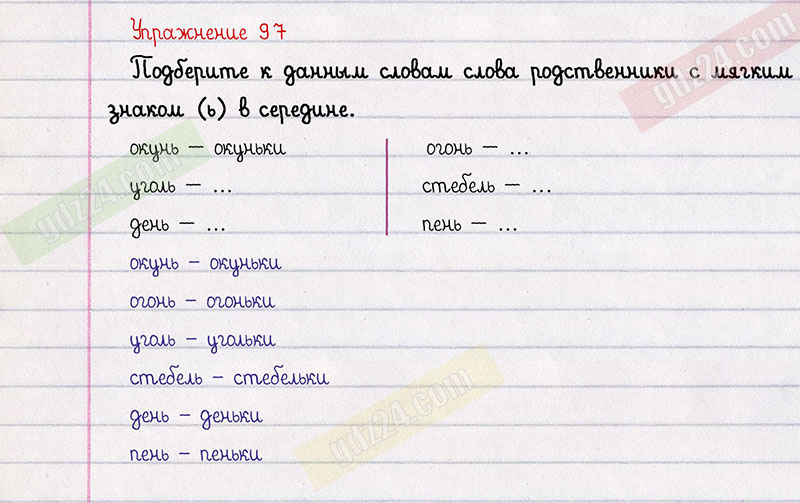 Упражнение 97
Подберите к данным словам слова родственники с мягким
знаком (ь) в середине.
окунь – окуньки
уголь – ...
день – ...
огонь – ...
стебель – ...
пень – ...
окунь – окуньки
огонь – огоньки
уголь – угольки
стебель – стебельки
день – деньки
пень – пеньки
gdz24.com
gdz24.com
gdz24.com